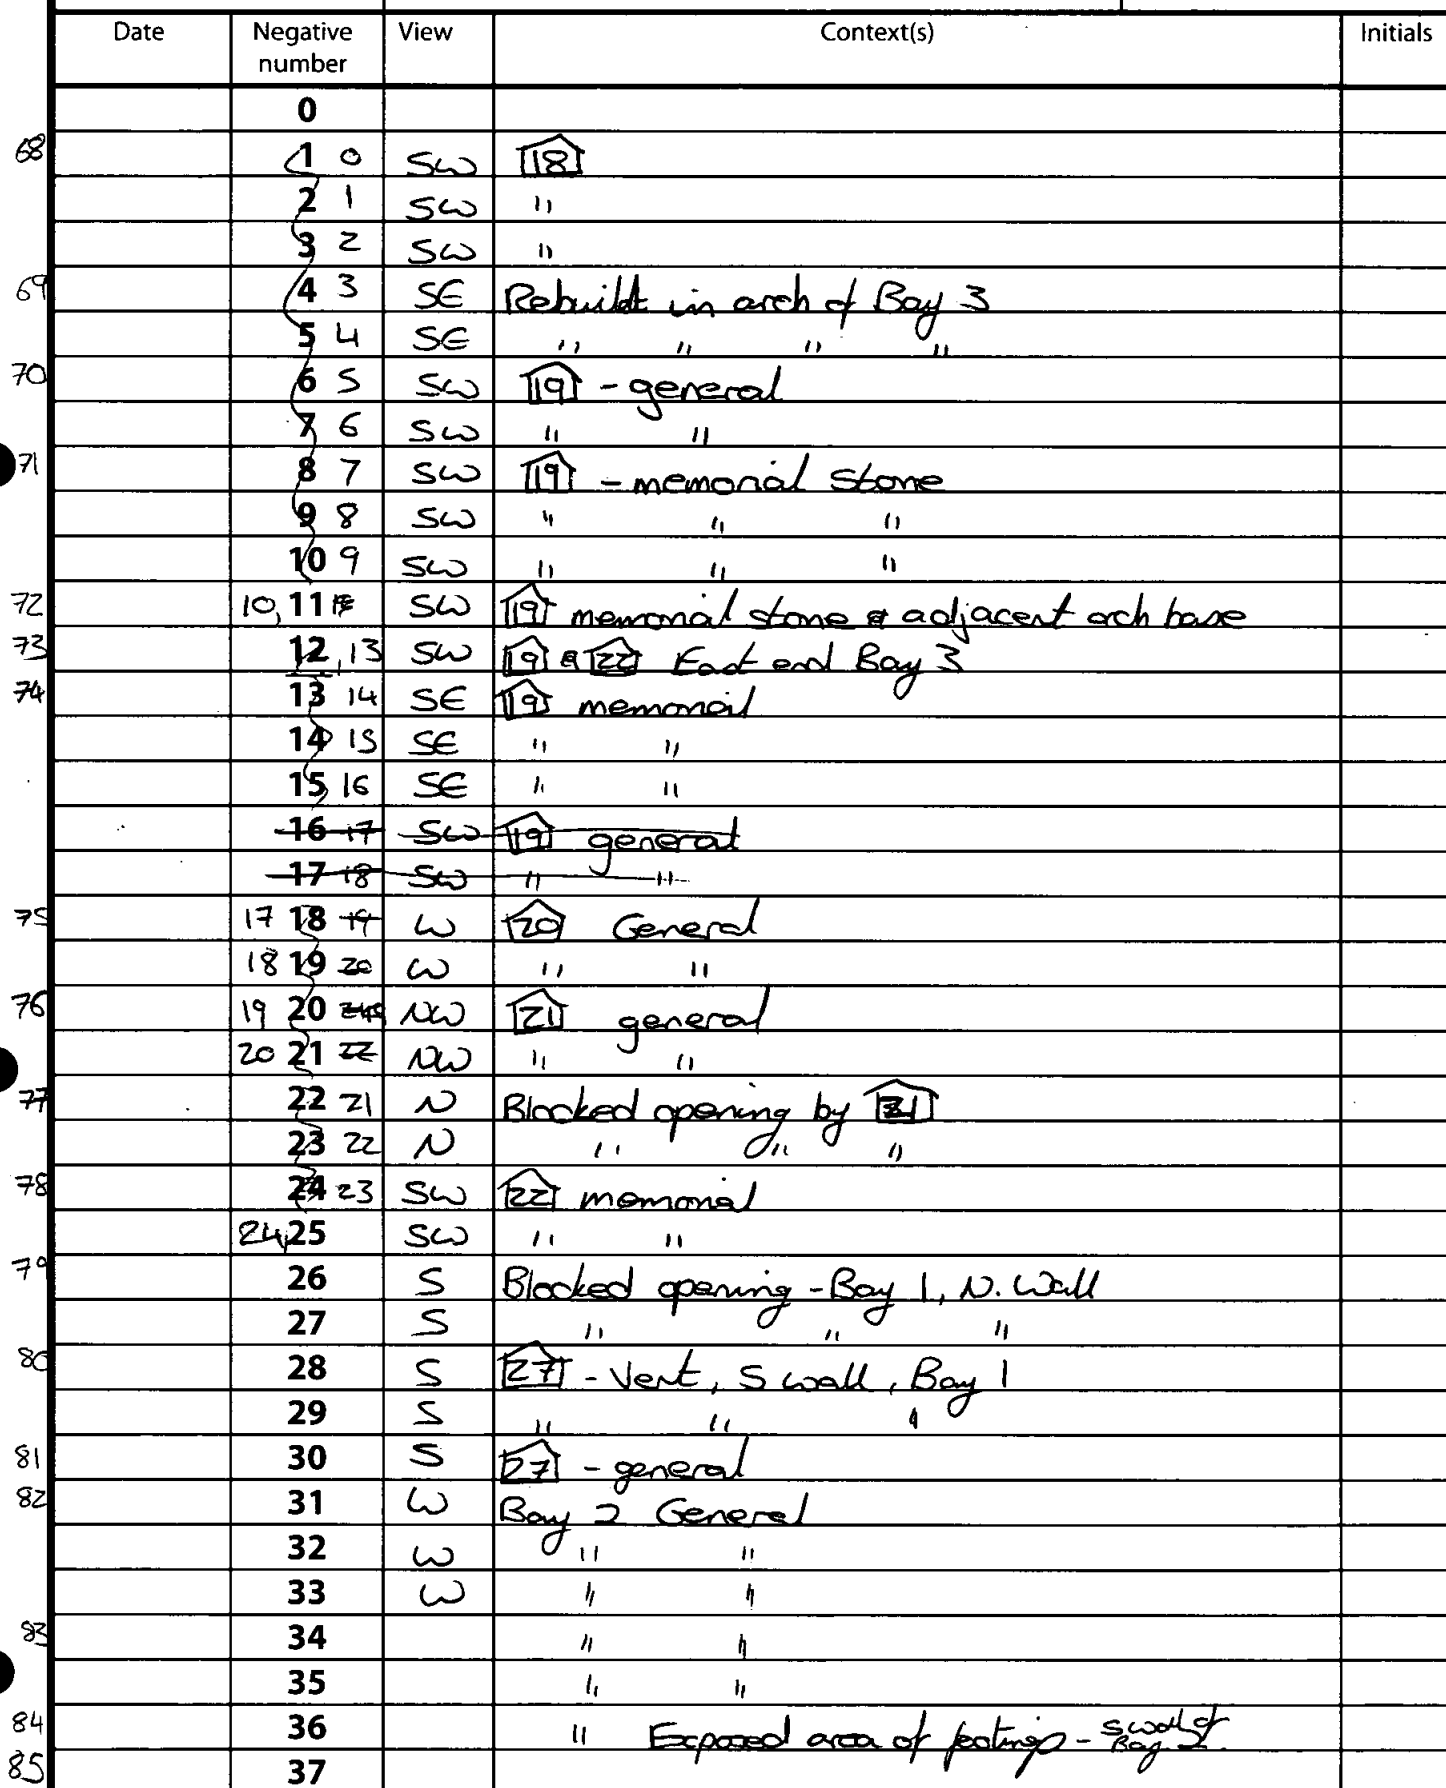 Date Negative number View Context(s) Initials
0
68 1 0 SW 18
2 1 SW "
3 2 SW "
69 4 3 SE Rebuild in arch of Bay 3
5 4 SE " " " "
70 6 5 SW 19 - general
7 6 SW " "
71 8 7 SW 19 - memorial stone
9 8 SW " " "
10 9 SW " " "
72 10, 11 SW 19 memorial stone & adjacent arch base
73 12, 13 SW 19 & 22 East end Bay 3
74 13 14 SE 19 memorial
14 15 SE " "
15 16 SE " "
16 17 SW 19 general
17 18 SW " "
75 17 18 19 W 20 General
18 19 20 W " "
76 19 20 NW 21 general
20 21 22 NW " "
77 22 21 N Blocked opening by 21
23 22 N " " "
78 24 23 SW 22 memorial
24, 25 SW " "
79 26 S Blocked opening - Bay 1, N. Wall
27 S " " "
80 28 S 27 - Vent, S wall, Bay 1
29 S " " "
81 30 S 27 - general
82 31 W Bay 2 General
32 W " "
33 W " "
83 34 " "
35 " "
84 36 " Exposed area of footings - S wall of Bay 2.
85 37